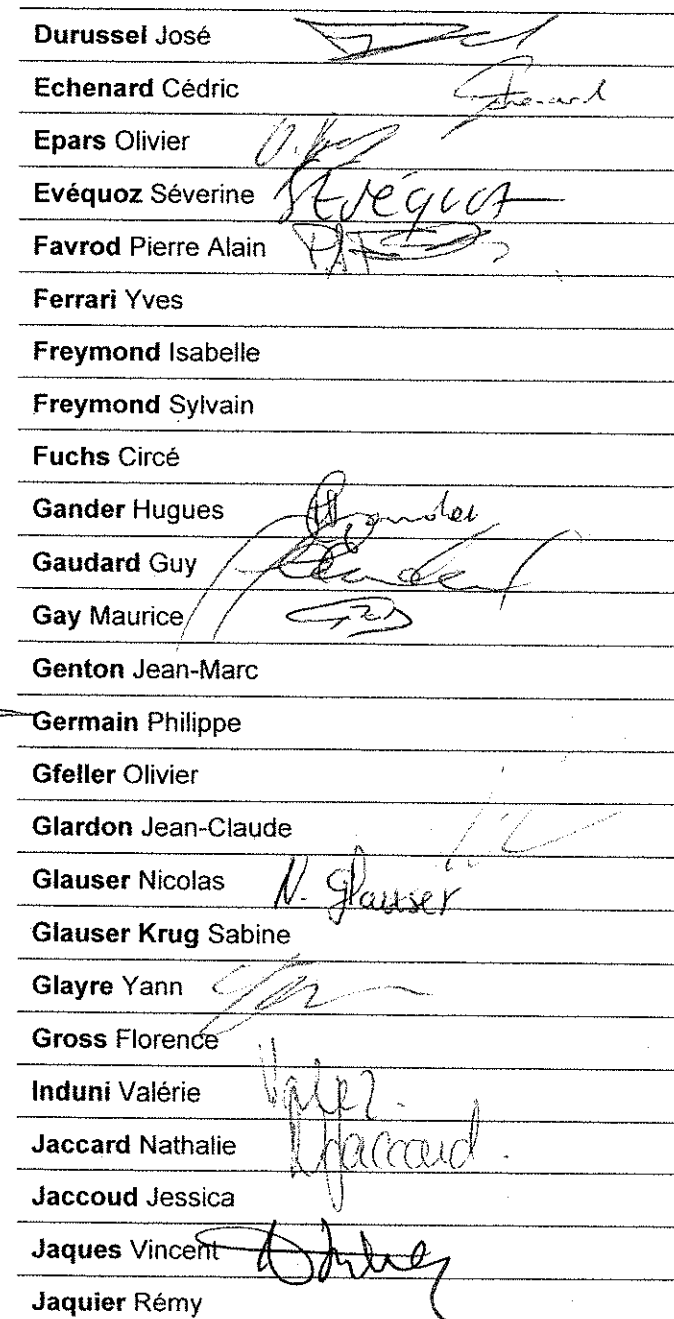 Durussel José
Echenard Cédric Echenard
Epars Olivier
Evéquoz Séverine SEvéquoz
Favrod Pierre Alain
Ferrari Yves
Freymond Isabelle
Freymond Sylvain
Fuchs Circé
Gander Hugues HGander
Gaudard Guy Gaudard
Gay Maurice Gay
Genton Jean-Marc
Germain Philippe
Gfeller Olivier
Glardon Jean-Claude
Glauser Nicolas N. Glauser
Glauser Krug Sabine
Glayre Yann
Gross Florence
Induni Valérie
Jaccard Nathalie NJaccard.
Jaccoud Jessica
Jaques Vincent
Jaquier Rémy